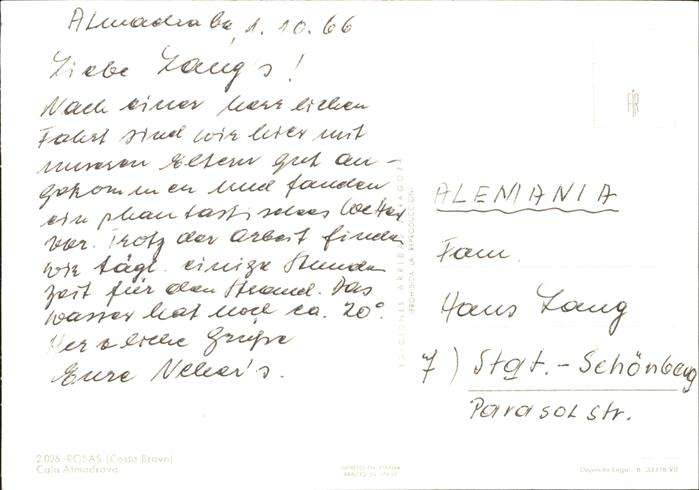 Almadraba, 1. 10. 66
Liebe Lang's!
Nach einer herrlichen
Fahrt sind wir hier mit
unseren Eltern gut an-
gekommen und fanden
ein phantastisches Wetter
vor. Trotz der Arbeit finden
wir tägl. einige Stunden
Zeit für den Strand. Das
Wasser hat noch ca. 20°.
Herzliche Grüße
Eure
ALEMANIA
Fam.
Hans Lang
7) Stgt.-Schönberg
Parasolstr.
2.026 -ROSAS (Costa Brava)
Cala Almadrava
PROHIBIDA LA REPRODUCCION
PRINTED IN SPAIN